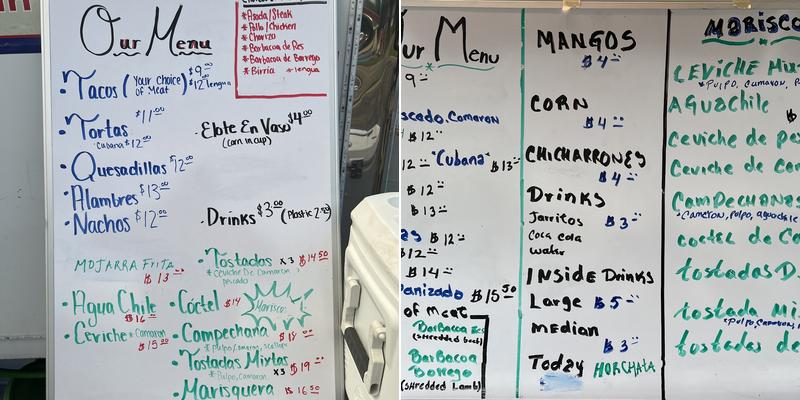 Our Menu
*Asada/Steak
*Pollo/Chicken
*Chorizo
*Barbacoa de Res
*Barbacoa de Borrego
*Birria *lengua
•Tacos (Your Choice Of Meat) $9.00
$12 lengua
•Tortas $11.00
*Cubana $12.00
•Quesadillas $12.00
•Alambres $13.00
•Nachos $12.00
•Elote En Vaso $4.00
(corn in cup)
•Drinks $3.00 (Plastic
MOJARRA FRITA
$13
•Tostadas x3 $14.50
*Ceviche De Camaron
pescado
•Agua Chile
$16
•Ceviche *Camaron
$15.00
•Coctel $14
Marisco
•Campechana $18
*Pulpo/Camaron, scallop
•Tostadas Mixtas $19
*Pulpo, Camaron x3
•Marisquera $16.50
ur Menu
9
scado, Camaron
$12
12 "Cubana" $13
$12
$13
$12
$12
$14
anizado $15.50
of Meat
BarBacoa
(shredded beef)
BarBacoa
Borrego
(shredded Lamb)
MANGOS
$4
CORN
$4
CHICHARRONES
$4
Drinks
Jarritos $3
Coca cola
water
INSIDE Drinks
Large $5
MEDIAN
$3
Today HORCHATA
MARISCO
CEVICHE Mix
*Pulpo, Camaron, P
AGUACHILE
Ceviche de pe
Ceviche de Ca
CAMPECHANA
*Camaron, Pulpo, aguachile
coctel de Ca
tostadas D
tostada Mi
*Pulpo, Camaron,
tostadas de